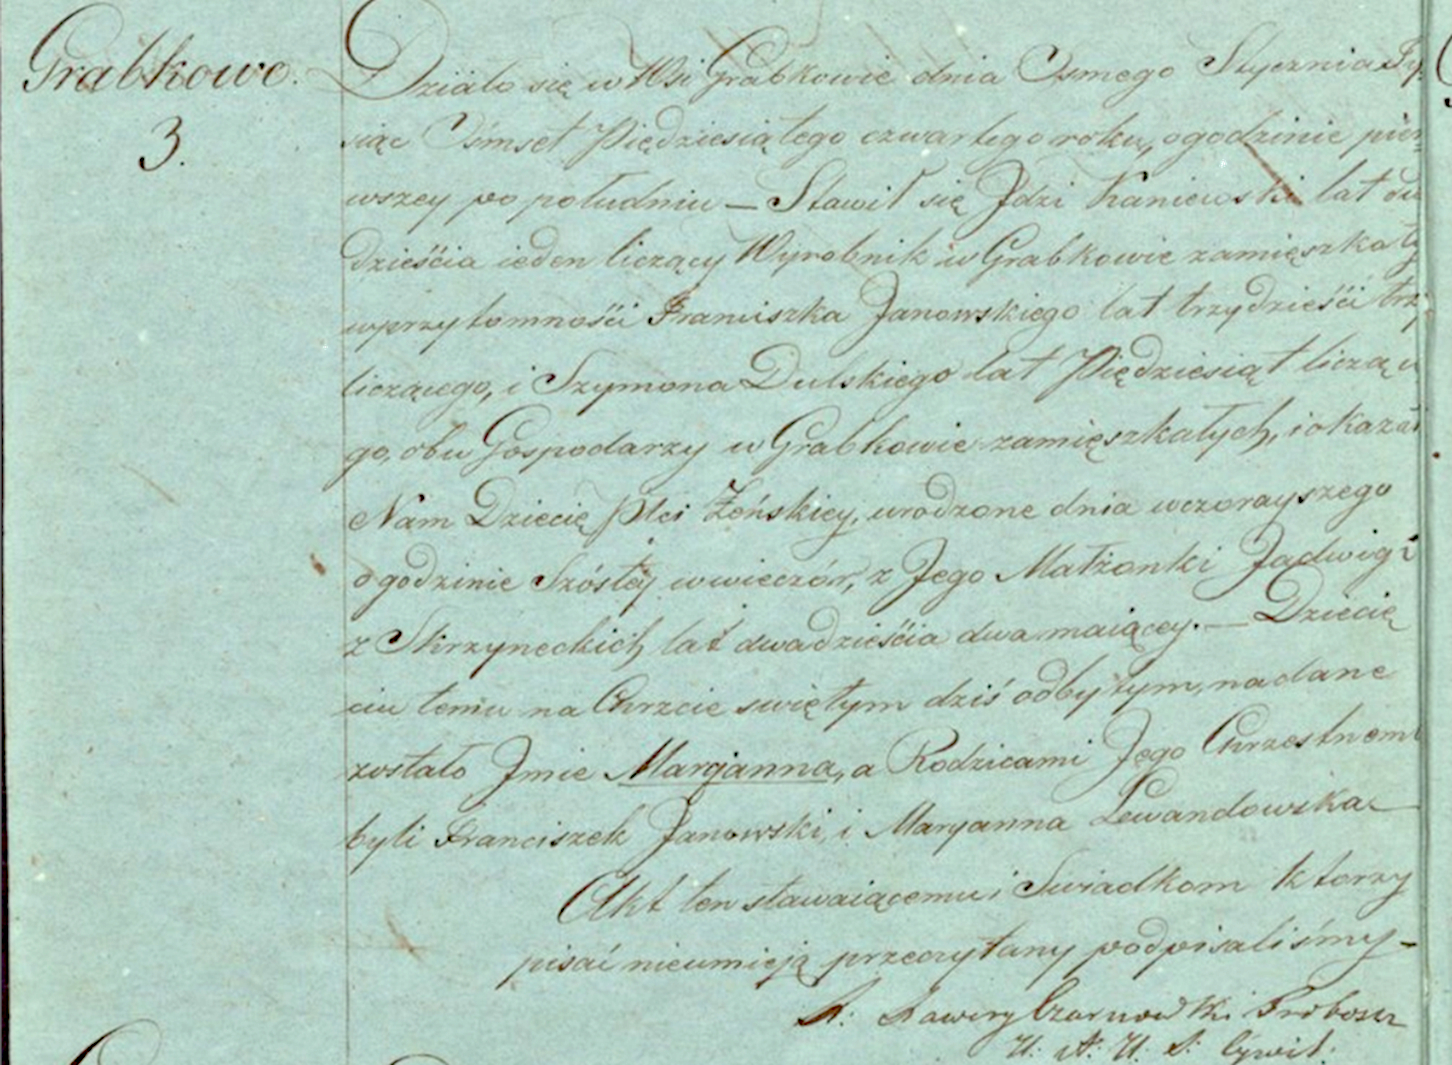 Grabkowo.
3.
Działo się w Wsi Grabkowie dnia Osmego Stycznia Ty
siąc Ośmset Piędziesiątego czwartego roku, o godzinie pier
wszey po południu — Stawił się Jdzi Kaniewski lat dw
dzieścia ieden liczący Wyrobnik w Grabkowie zamięszkały
w przytomności Franciszka Janowskiego lat trzydzieści trzy
liczącego, i Szymona Dulskiego lat Piędziesiąt licząc
go, obu Gospodarzy w Grabkowie zamięszkałych, i okazał
Nam Dziecię płci Żeńskiey, urodzone dnia wczorayszego
o godzinie Szóstej w wieczór, z Jego Małżonki Jadwigi
z Skrzyneckich lat dwadzieścia dwa maiącey. — Dziecię
ciu temu na Chrzcie świętym dziś odbytym, nadane
zostało Jmie Maryanna, a Rodzicami Jego Chrzestnemi
byli Franciszek Janowski, i Maryanna Lewandowska
Akt ten stawaiącemu i Swiadkom którzy
pisać nieumieją przeczytany podpisaliśmy -
X. Xawery Czarnowski Proboszcz
U. A. U. S. Cywil.